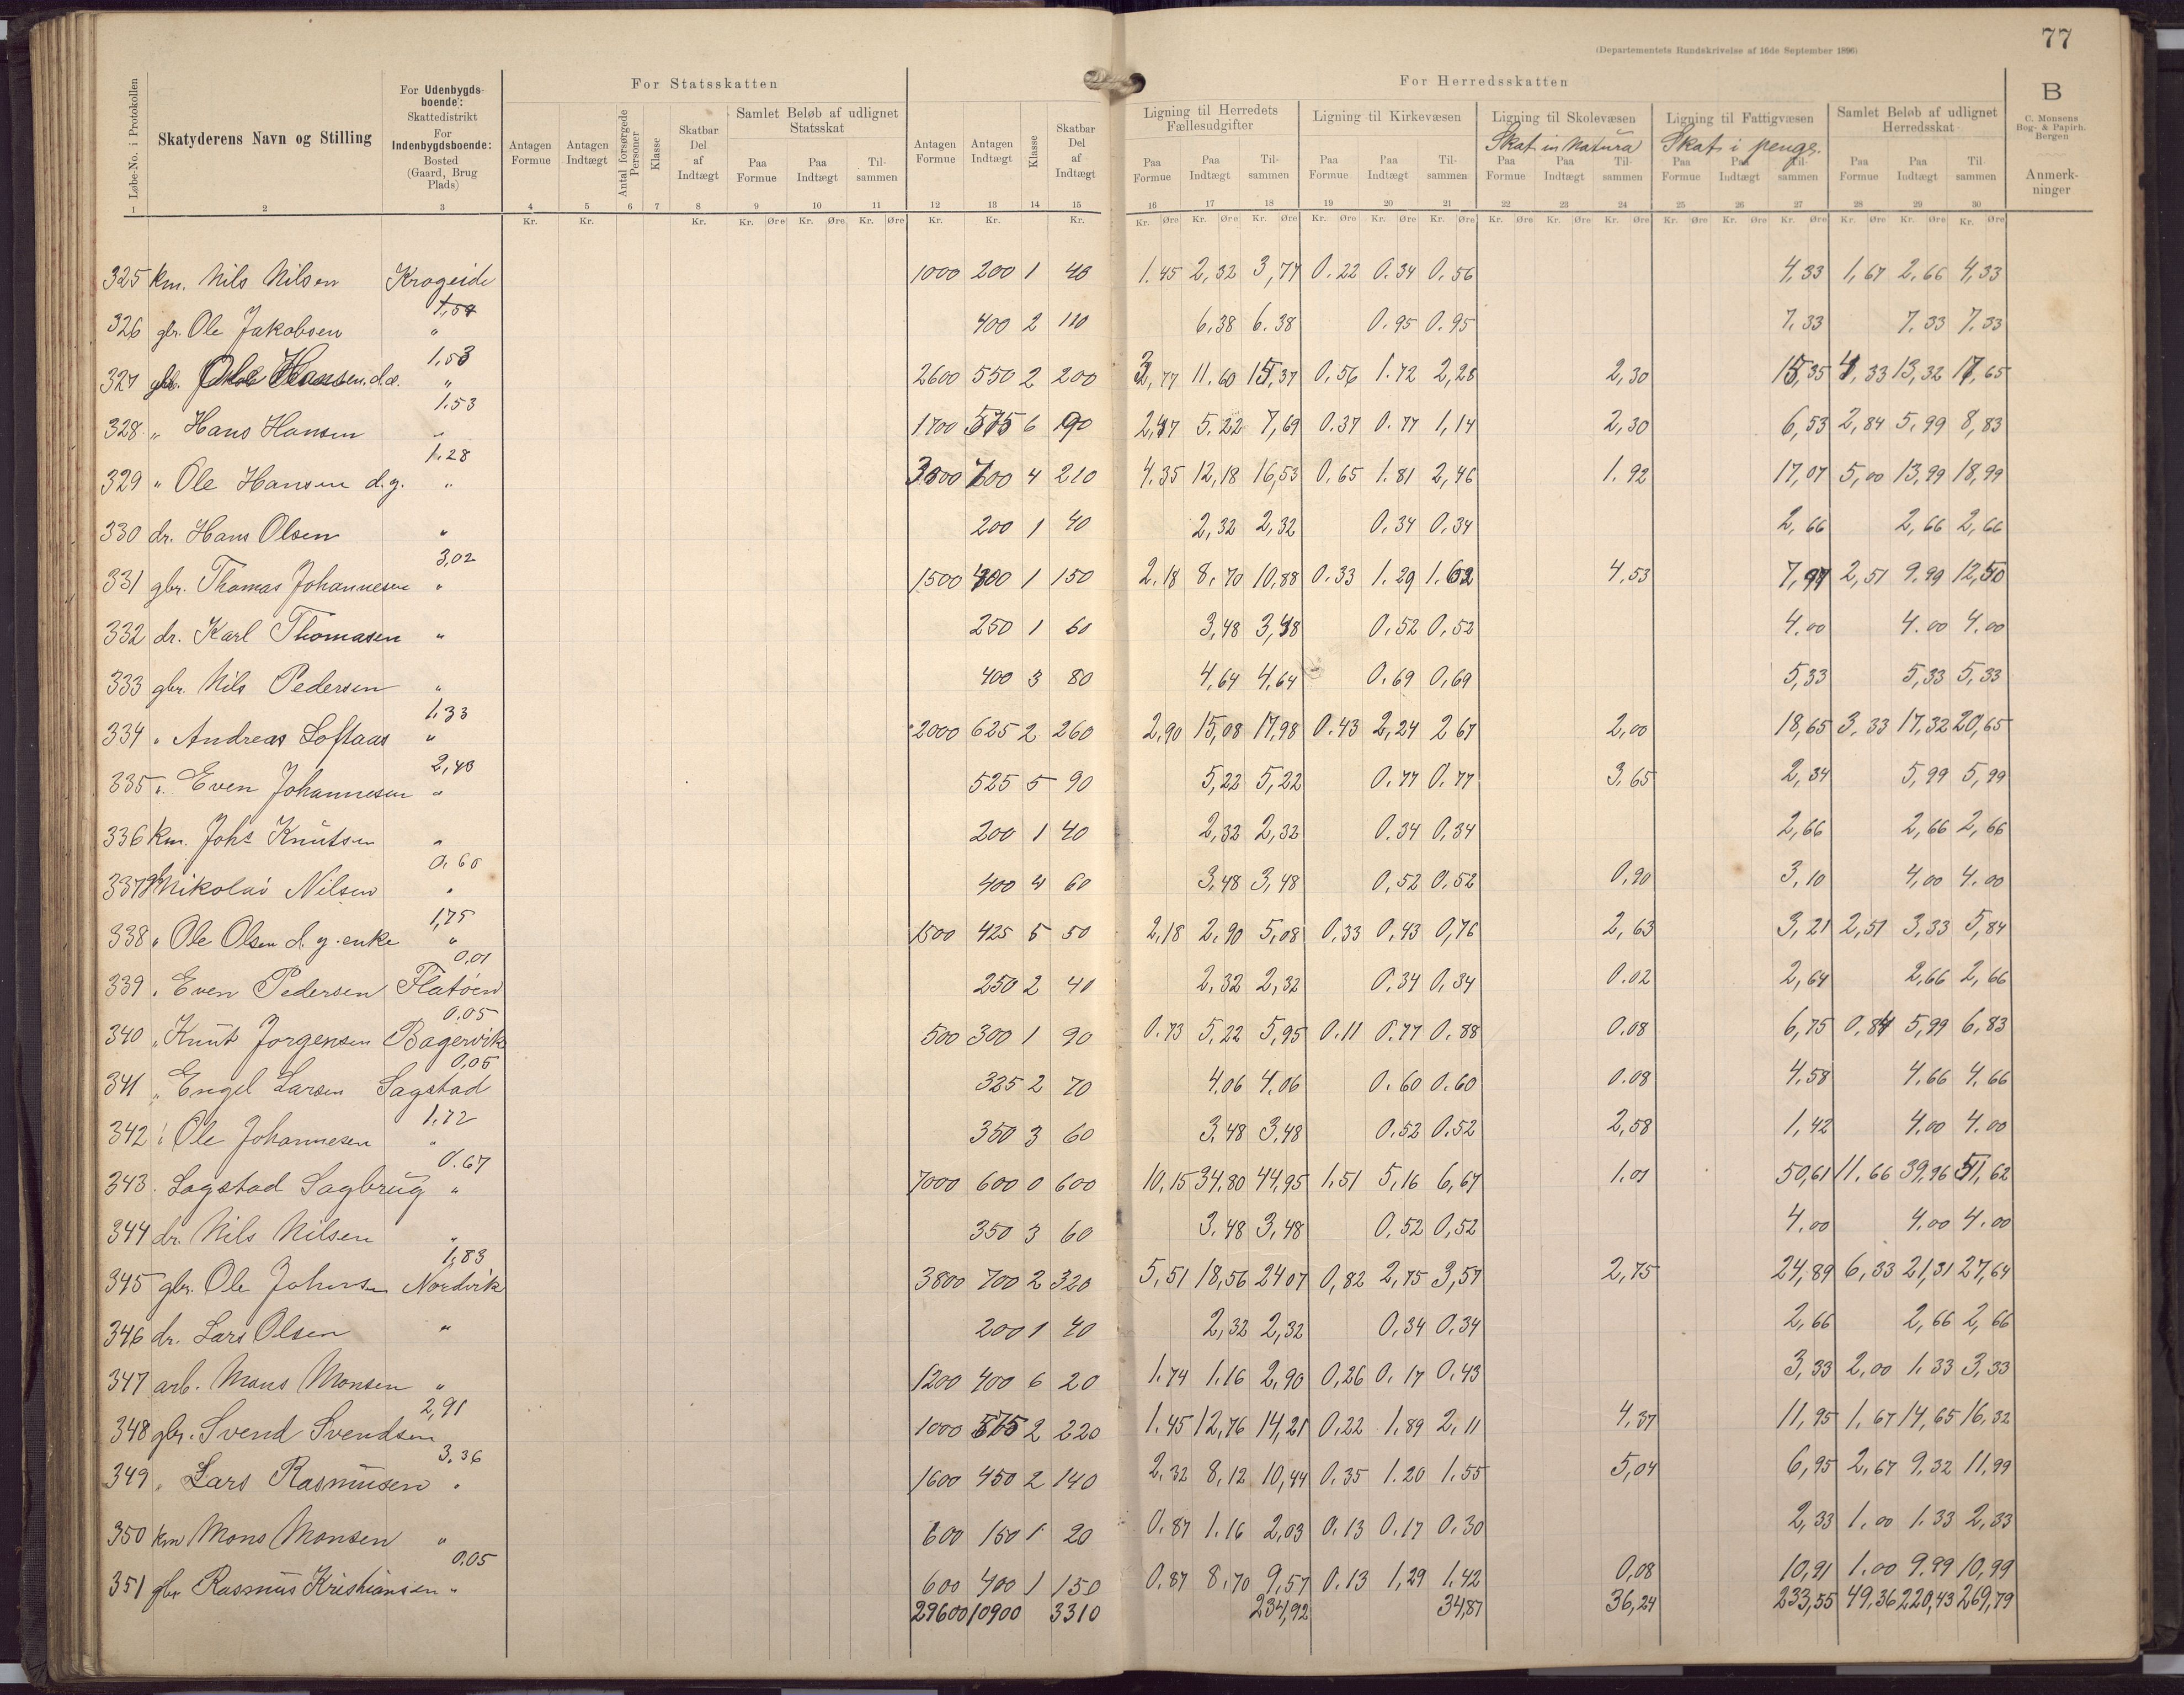 77
(Departementets Rundskrivelse af 16de September 1896)
For Statsskatten
For Herredsskatten
B
C. Monsens Bog- & Papirh. Bergen
Løbe-No. i Protokollen
Skatyderens Navn og Stilling
For Udenbygdsboende: Skattedistrikt For Indenbygdsboende: Bosted (Gaard, Brug Plads)
Antagen Formue
Antagen Indtægt
Antal forsørgede Personer
Klasse
Skatbar Del af Indtægt
Samlet Beløb af udlignet Statsskat
Paa Formue Paa Indtægt Tilsammen
Antagen Formue
Antagen Indtægt
Klasse
Skatbar Del af Indtægt
Ligning til Herredets Fællesudgifter
Paa Formue Paa Indtægt Tilsammen
Ligning til Kirkevæsen
Paa Formue Paa Indtægt Tilsammen
Ligning til Skolevæsen
Skat in natura
Paa Formue Paa Indtægt Tilsammen
Ligning til Fattigvæsen
Skat i penge.
Paa Formue Paa Indtægt Tilsammen
Samlet Beløb af udlignet Herredsskat
Paa Formue Paa Indtægt Tilsammen
Anmerkninger
1 2 3 4 5 6 7 8 9 10 11 12 13 14 15 16 17 18 19 20 21 22 23 24 25 26 27 28 29 30
Kr. Kr. Kr. Kr. Øre Kr. Øre Kr. Øre Kr. Kr. Kr. Kr. Øre Kr. Øre Kr. Øre Kr. Øre Kr. Øre Kr. Øre Kr. Øre Kr. Øre Kr. Øre Kr. Øre Kr. Øre Kr. Øre Kr. Øre Kr. Øre Kr. Øre
325 km. Nils Nilsen Krogeide 1000 200 1 40 1.45 2,32 3,77 0.22 0.34 0.56 4,33 1,67 2,66 4,33
1,54
326 gbr. Ole Jakobsen " 400 2 110 6,38 6.38 0.95 0.95 7.33 7.33 7.33
1.53
327 gbr. Ole Hansen d.æ. " 2600 550 2 200 3,77 11.60 15,37 0,56 1.72 2,28 2,30 15,35 4,33 13,32 17,65
1.53
328 " Hans Hansen " 1700 575 6 90 2,47 5.22 7,69 0.37 0.77 1,14 2,30 6,53 2,84 5,99 8,83
1.28
329 " Ole Hansen d.y. " 3000 700 4 210 4.35 12,18 16,53 0.65 1.81 2,46 1.92 17,07 5,00 13,99 18,99
330 dr. Hans Olsen " 200 1 40 2,32 2,32 0.34 0.34 2,66 2,66 2,66
3,02
331 gbr. Thomas Johannesen " 1500 400 1 150 2.18 8,70 10,88 0.33 1.29 1.62 4,53 7,97 2,51 9.99 12,50
332 dr. Karl Thomasen " 250 1 60 3,48 3,48 0.52 0,52 4.00 4.00 4.00
333 gbr. Nils Pedersen " 400 3 80 4,64 4,64 0.69 0,69 5,33 5,33 5,33
1.33
334 " Andreas Loftaas " 2000 625 2 260 2,90 15,08 17,98 0.43 2,24 2 67 2,00 18,65 3,33 17,32 20,65
2,43
335 " Even Johannesen " 525 5 90 5,22 5,22 0.77 0.77 3.65 2,34 5,99 5,99
336 km. Johs Knutsen " 200 1 40 2,32 2,32 0.34 0,34 2,66 2,66 2,66
0.60
337 gbr Nikolai Nilsen " 400 4 60 3,48 3,48 0,52 0.52 0,90 3,10 4,00 4.00
1,75
338 " Ole Olsen d.y. enke " 1500 425 5 50 2,18 2,90 5,08 0,33 0,43 0,76 2,63 3,21 2,51 3,33 5,84
0,01
339 " Even Pedersen Flatøen 250 2 40 2,32 2,32 0.34 0,34 0.02 2,64 2,66 2,66
0.05
340 " Knut Jorgensen Bagervik 500 300 1 90 0.73 5.22 5,95 0.11 0.77 0.88 0.08 6,75 0,84 5,99 6,83
0,05
341 " Engel Larsen Sagstad 325 2 70 4.06 4.06 0.60 0.60 0.08 4,58 4,66 4,66
1.72
342 " Ole Johannesen " 350 3 60 3,48 3,48 0.52 0.52 2,58 1,42 4.00 4.00
0.67
343 Sagstad Sagbrug " 7000 600 0 600 10,15 34,80 44,95 1,51 5,16 6,67 1.01 50,61 11.66 39,96 51,62
344 dr. Nils Nilsen " 350 3 60 3.48 3,48 0.52 0,52 4.00 4.00 4.00
1,83
345 gbr. Ole Johnsen Nordvik 3800 700 2 320 5,51 18,56 24 07 0,82 2,75 3,57 2,75 24,89 6,33 21,31 27,64
346 dr. Lars Olsen " 200 1 40 2,32 2,32 0,34 0.34 2,66 2,66 2,66
347 arb. Mons Monsen " 1200 400 6 20 1.74 1.16 2.90 0,26 0.17 0.43 3,33 2,00 1.33 3,33
2,91
348 gbr. Svend Svendsen 1000 575 2 220 1.45 12,76 14,21 0,22 1,89 2,11 4,37 11,95 1,67 14,65 16,32
3.36
349 " Lars Rasmusen " 1600 450 2 140 2,32 8,12 10,44 0.35 1.20 1.55 5,04 6,95 2,67 9.32 11,99
350 km Mons Monsen " 600 150 1 20 0.87 1.16 2,03 0.13 0.17 0.30 2,33 1.00 1.33 2,33
0.05
351 gbr Rasmus Kristiansen " 600 400 1 150 0.87 8,70 9,57 0.13 1,29 1.42 0,08 10,91 1.00 9.99 10,99
29600 10900 3310 234,92 34,87 36,24 233,55 49,36 220,43 269,79